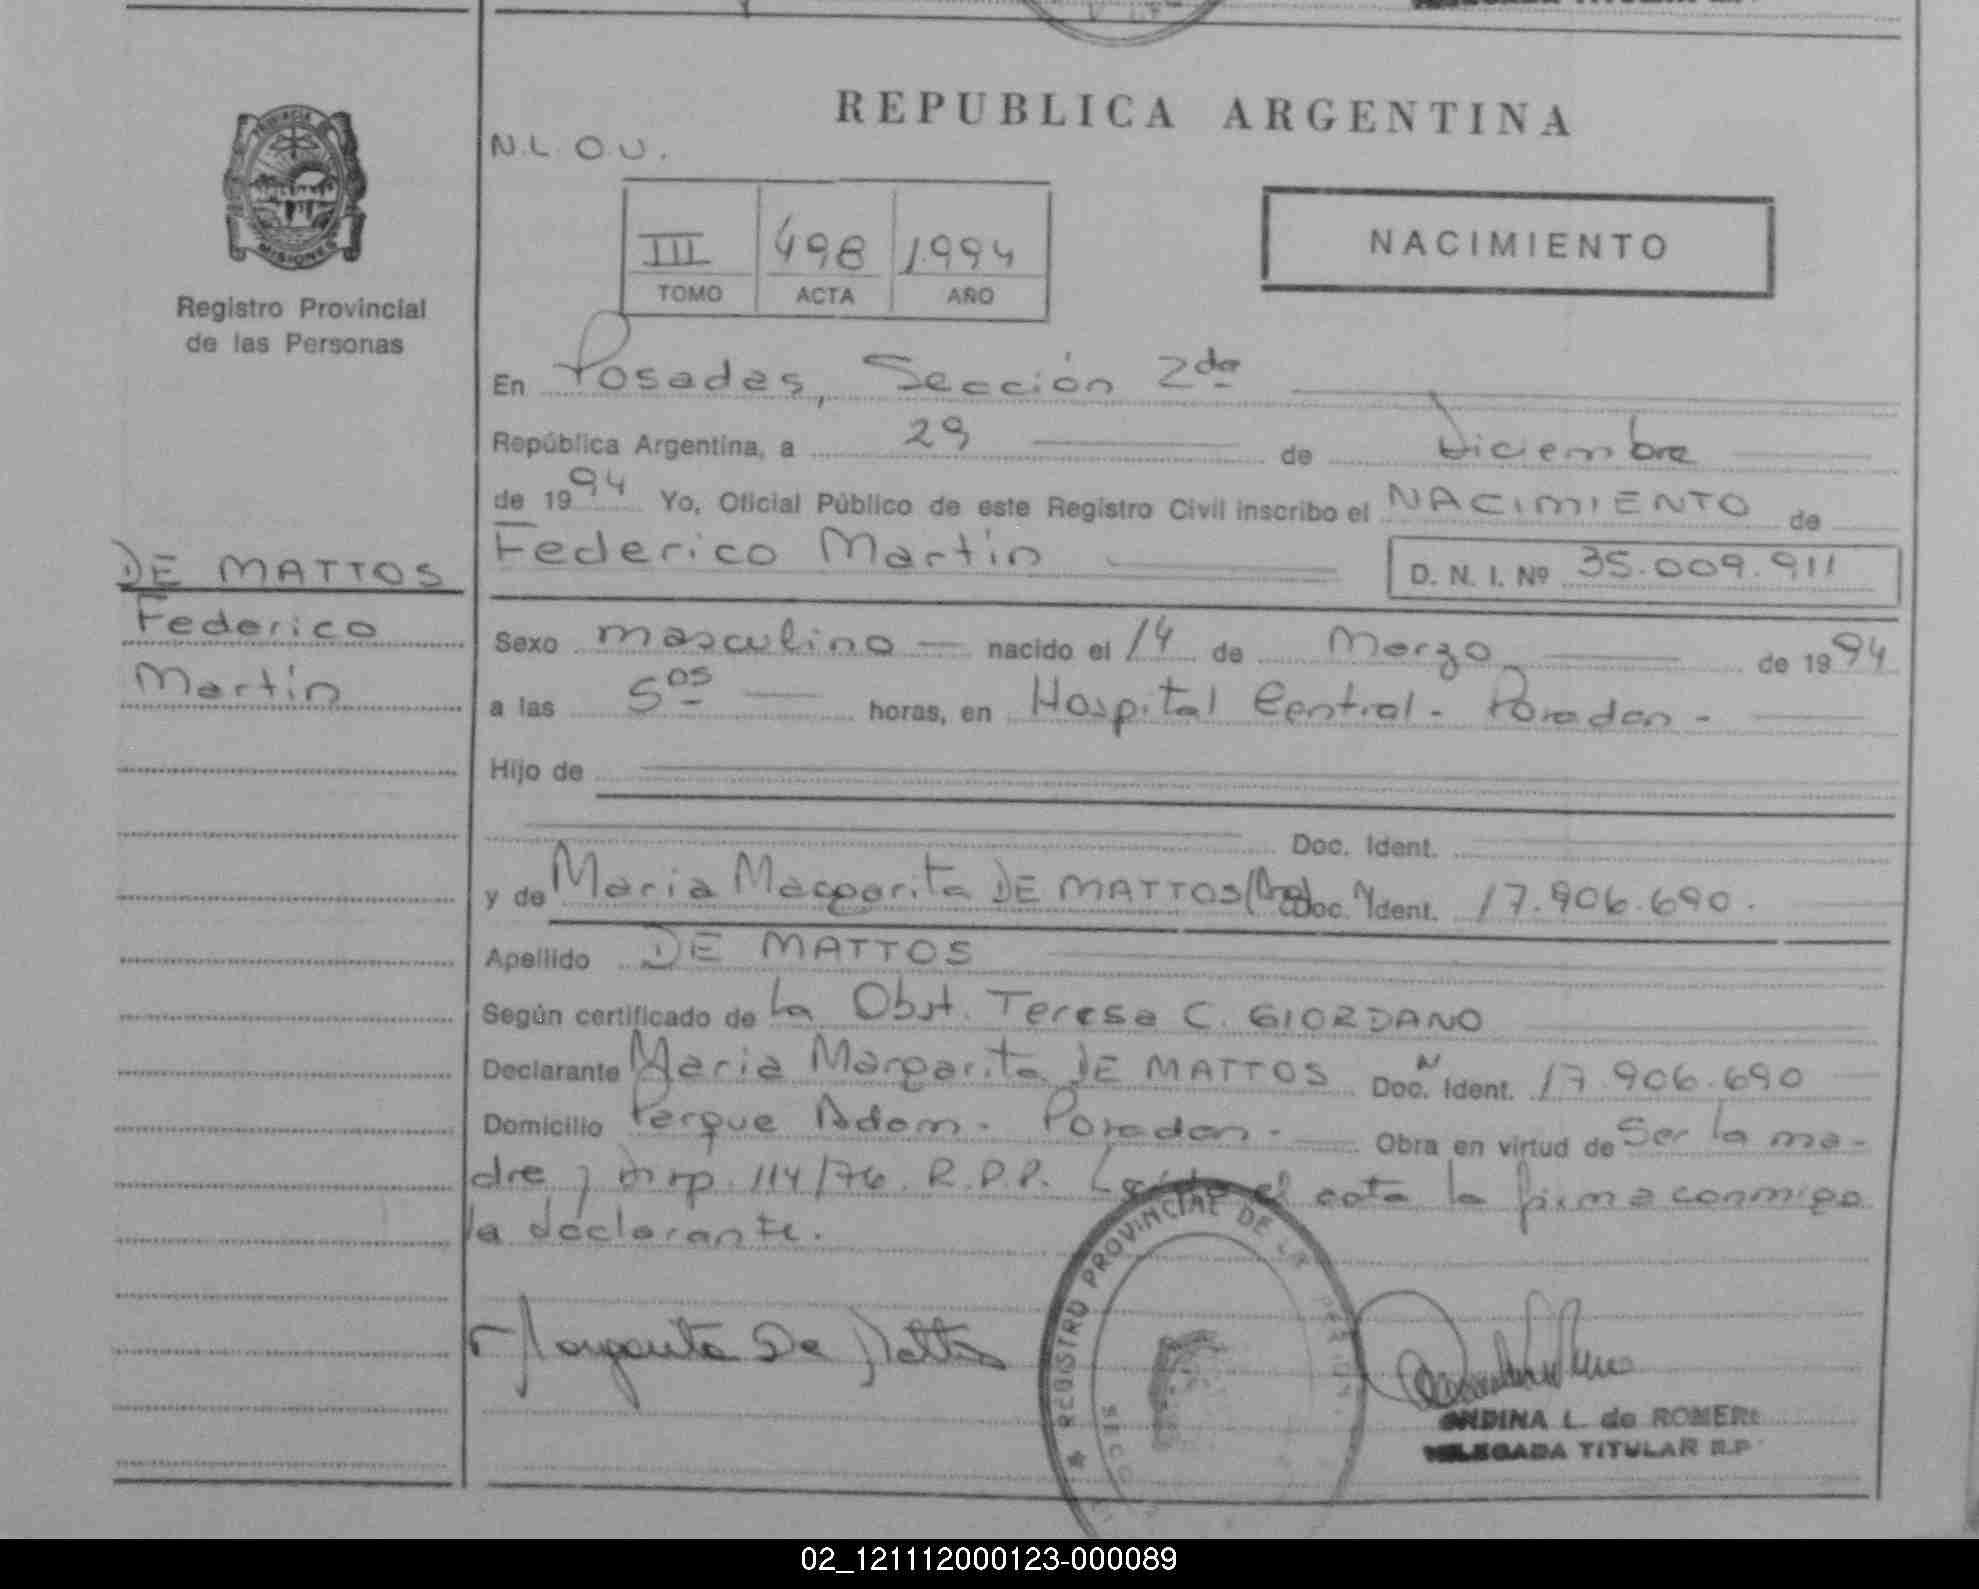 REPUBLICA ARGENTINA
N.L.O.U.
PROVINCIA DE
MISIONES
Registro Provincial
de las Personas
III 498 1994
TOMO ACTA AÑO
NACIMIENTO
En Posadas, Sección 2da
República Argentina, a 29 de Diciembre
de 1994 Yo, Oficial Público de este Registro Civil inscribo el NACIMIENTO de
Federico Martín D. N. I. Nº 35.009.911
DE MATTOS
Federico
Martín
Sexo masculino nacido el 14 de Marzo de 1994
a las 5os horas, en Hospital Central - Posadas -
Hijo de
Doc. Ident.
y de Maria Margarita DE MATTOS Doc. Ident. 17.906.690.
Apellido DE MATTOS
Según certificado de la Obst. Teresa C. GIORDANO
Declarante Maria Margarita DE MATTOS Doc. N Ident. 17.906.690
Domicilio Parque Adam - Posadas - Obra en virtud de Ser la ma-
dre y Disp. 114/76. R.P.P. Leída el acta la firma conmigo
la declarante.
Margarita De Mattos
REGISTRO PROVINCIAL DE LA
ONDINA L. de ROMERO
DELEGADA TITULAR R.P.
02_121112000123-000089